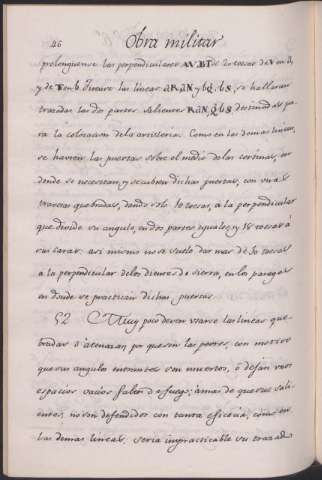 46 Obra militar
prolonguense las perpendiculares AV.BT. de 20 toesas de V en R,
y de T en b. Tirense las lineas a R, a N, y b Q. b S, se hallaran
trazadas las dos partes salientes R a N, Q b S destinadas pa
ra la colocacion de la artilleria. Como en las demas lineas,
se haveren las puertas sobre el medio de las cortinas, en
donde se necesitan, y se cubren dichas puertas, con una
traversa quebradas, dando solo 10 toesas, a la perpendicular
que divide su angulo, en dos partes yguales, y 18 toesas á
sus caras. asi mismo no se suele dar mas de 30 toesas
a la perpendicular de los dientes de sierra, en los parages
en donde se practican dichas puertas.
52 Muy poco deven usarse las lineas que
bradas ó atenazas por que son las peores, con motivo
que sus angulos entrantes son muertos, ó dejan unos
espacios vacios faltos de fuego; a mas de que sus salie
entes, no son defendidos con tanta eficacia, como en
las demas lineas, seria impracticable su trazad